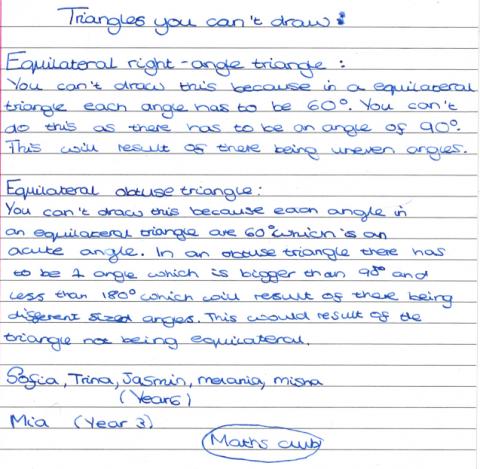 Triangles you can't draw:
Equilateral right-angle triangle:
You can't draw this because in a equilateral
triangle each angle has to be 60°. You can't
do this as there has to be an angle of 90°.
This will result of there being uneven angles.
Equilateral obtuse triangle:
You can't draw this because each angle in
an equilateral triangle are 60° which is an
acute angle. In an obtuse triangle there has
to be 1 angle which is bigger than 90° and
less than 180° which will result of there being
different sized anges. This would result of the
triangle not being equilateral.
Sofia, Trina, Jasmin, melania, misha
(Year 6)
Mia (Year 3)
Maths club